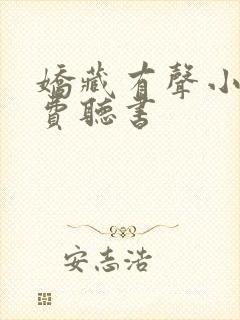 嬌藏有聲小
費聽書
安志浩